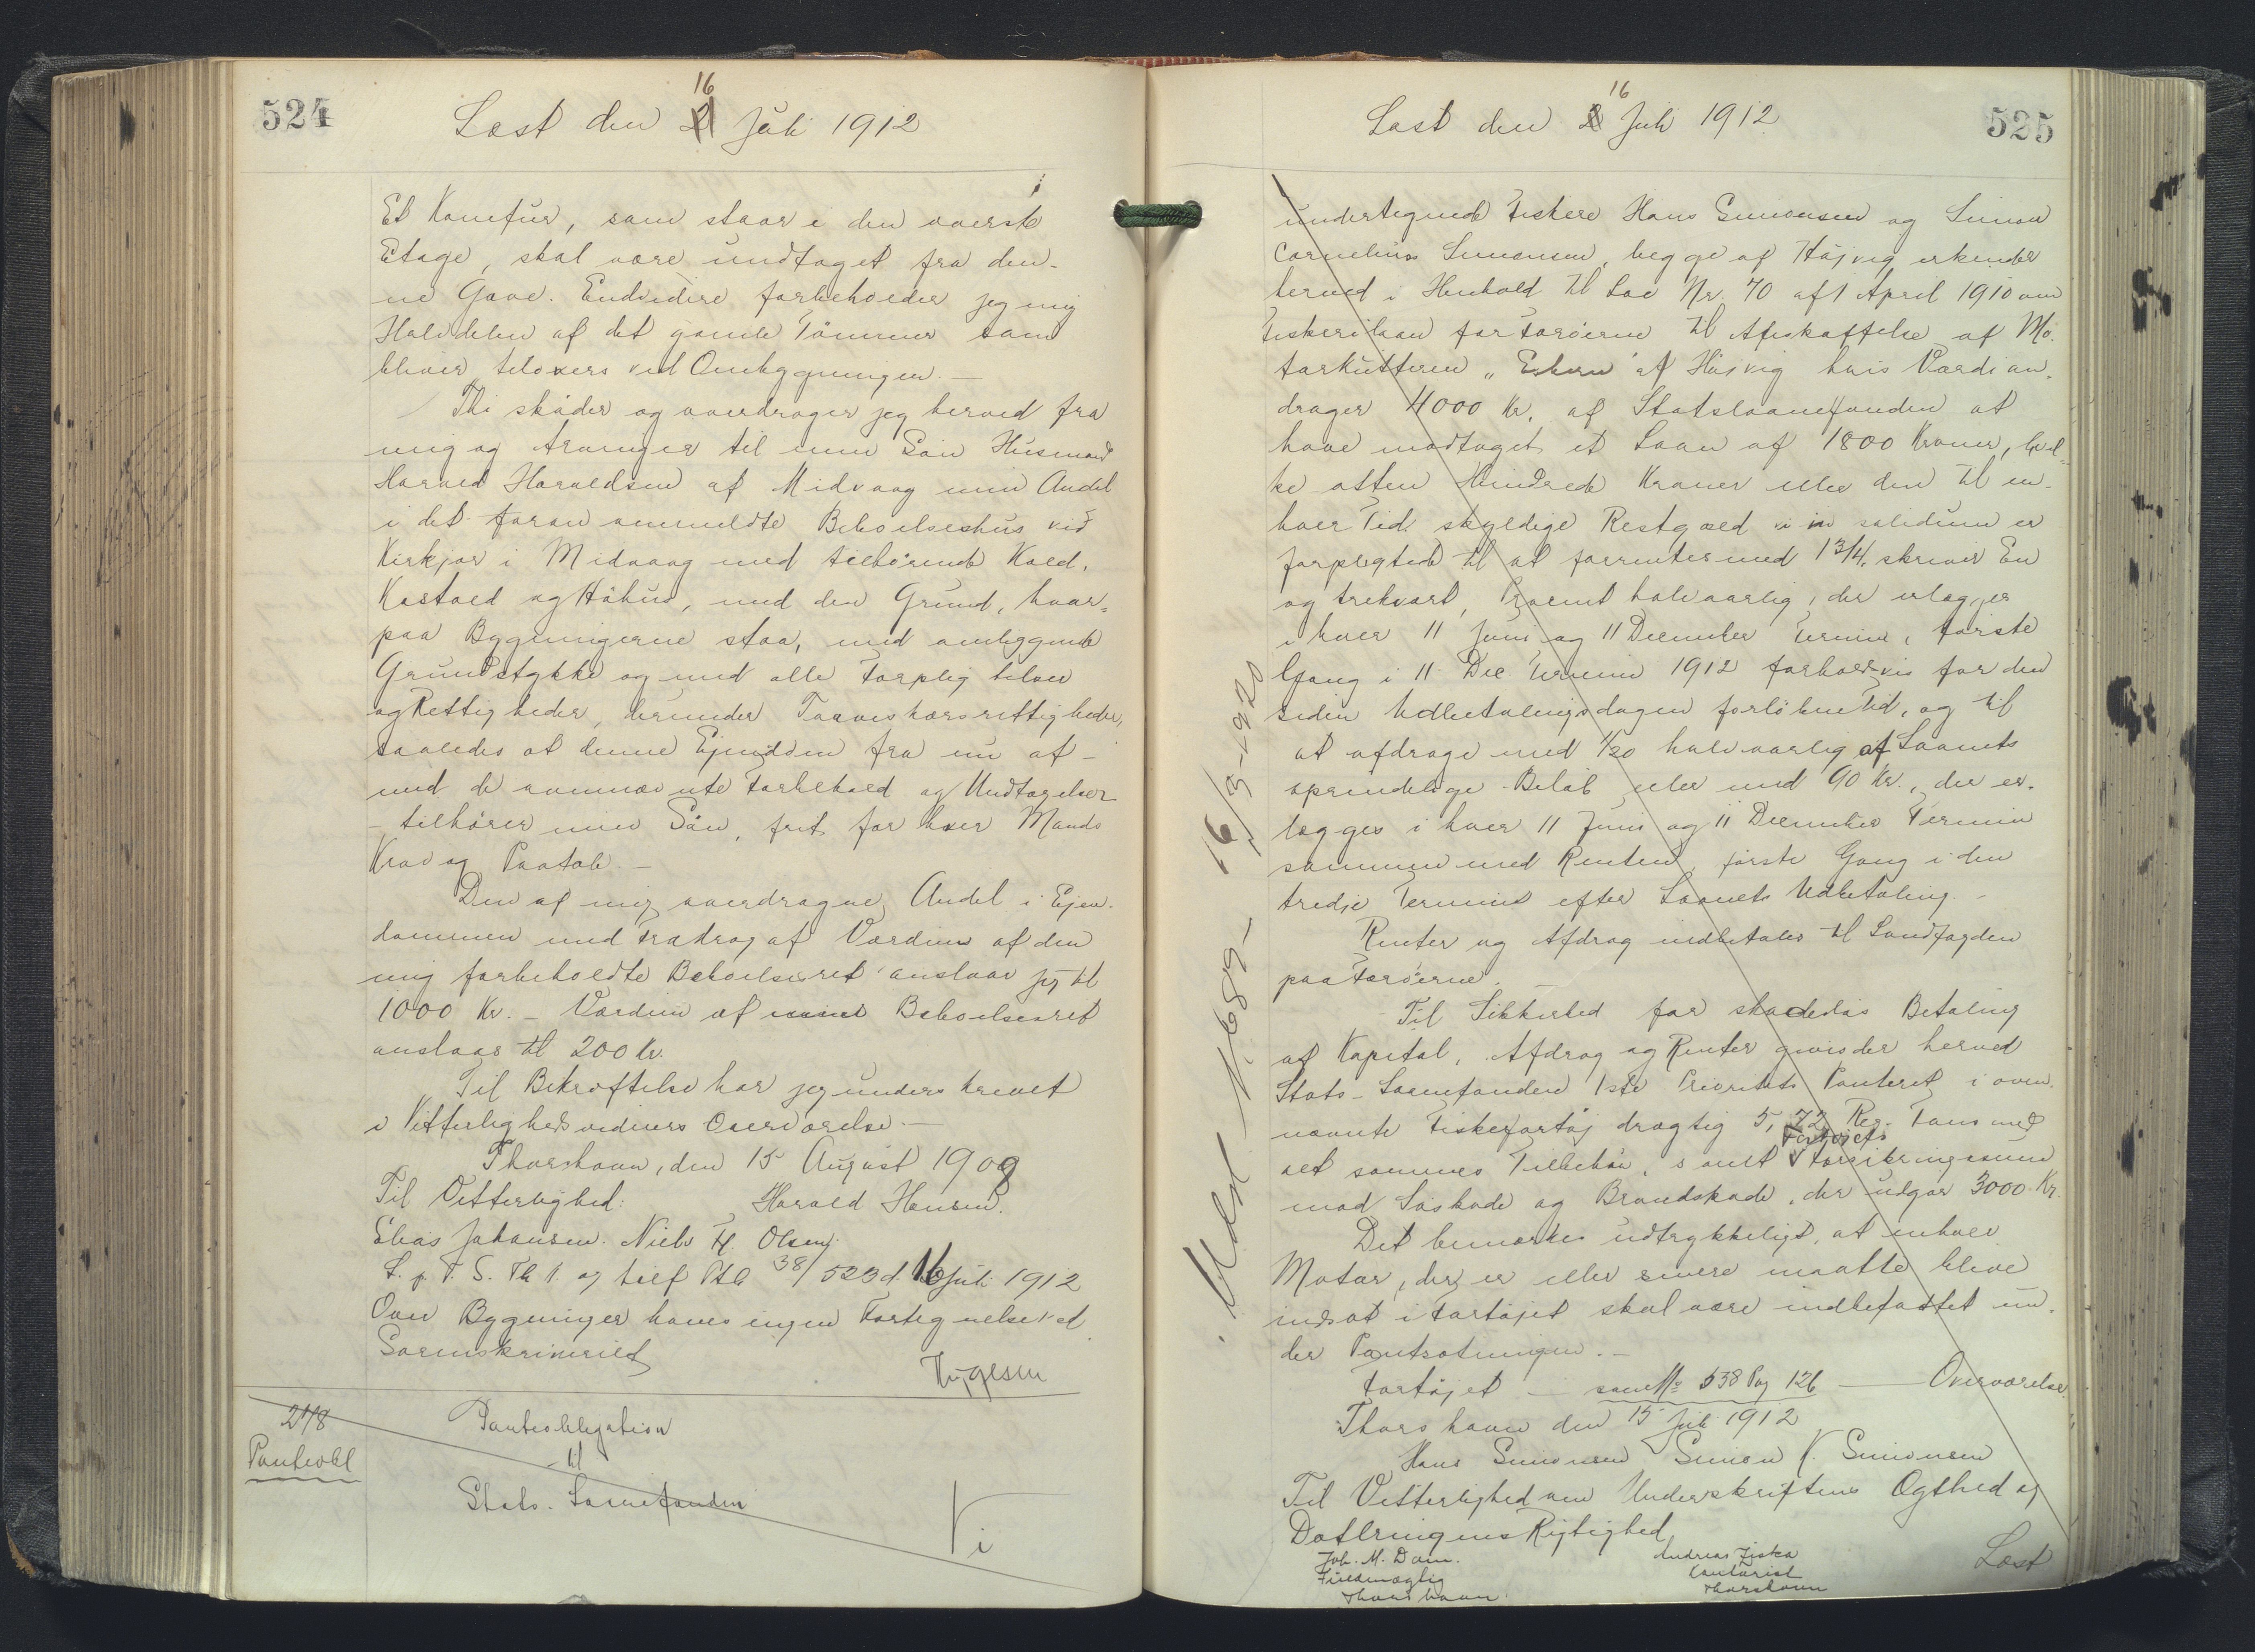 524
Læst den 16 Juli 1912
Et Komfur, som staar i den øverste
Etage, skal være undtaget fra den-
ne Gave. Endvidere forbeholder jeg mig
Halvdelen af det gamle Tømmer som
bliver tilovers ved Ombygningen.—
Thi skøder og overdrager jeg herved fra
mig og Arvinger til min Søn Husmand
Harald Haraldsen af Midvaag min Andel
i det foran ommeldte Beboelseshus ved
Kirkjar i Midvaag med tilhørende Kæld.
Kostald og Høhus, med den Grund, hvor-
paa Bygningerne staa, med omliggende
Grundstykke og med alle Forpligtelser
og Rettigheder, derunder
saaledes at denne Ejendom fra nu af —
med de ovennævnte Forbehold og Undtagelser
— tilhører min Søn, frit for hver Mands
Krav og Paatale.—
Den af mig overdragne Andel i Ejen-
dommen med Fradrag af Værdien af den
mig forbeholdte Beboelsesret anslaar jeg til
1000 Kr. — Værdien af Beboelsesret
anslaas til 200 Kr.
Til Bekræftelse har jeg underskrevet
i Vitterlighedsvidners Overværelse.—
Thorshavn, den 15 August 1909
Til Vitterlighed: Harald Hansen.
Elias Johansen. Niels H. Olsen.
L. p. V. S. Th. 1. og tilf Ptb 38/523 d. 16 Juli 1912
Over Bygninger haves ingen Fortegnelse ved
Sorenskriveriet
278
Panteobl
Panteobligation
til
Stats-Laanefonden
Vi
525
Læst den 16 Juli 1912
undertegnede Fiskere Hans Simonsen og Simon
Cornelius Simonsen, begge af Højvig erkender
herved i Henhold til Lov Nr. 70 af 1 April 1910 om
Fiskerilaan for Færøerne til Afskaffelse af Mo-
torkutteren " " af Højvig hvis Værdi an-
drager 4000 Kr. af Statslaanefonden at
have modtaget et Laan af 1800 Kroner, hvil-
ke atten Hundrede Kroner eller den til en-
hver Tid skyldige Restgæld vi in solidum er
forpligtede til at forrentes med 1 3/4, skriver En
og trekvart, Procent halvaarlig, der erlægges
i hver 11 Juni og 11 December Termin, første
Gang i 11 Dec Termin 1912 forholdsvis for den
siden Udbetalingsdagen forløbne Tid, og til
at afdrage med 1/20 halvaarlig af Laanets
oprindelige Beløb eller med 90 Kr., der er-
lægges i hver 11 Juni og 11 December Termin
sammen med Renten, første Gang i den
tredje Termin efter Laanets Udbetaling.—
Renter og Afdrag indbetales til Landfogden
paa Færøerne.
Til Sikkerhed for skadesløs Betaling
af Kapital, Afdrag og Renter gives der herved
Stats-Laanefonden 1ste Prioritets Panteret i oven-
nævnte Fiskefartøj drægtig 5,72 Reg. Tons med
alt sammes Tilbehør, samt Fartøjets Forsikringssum
mod Søskade og Brandskade, der udgør 3000 Kr.
Det bemærkes udtrykkeligt, at enhver
Motor, der er eller senere maatte blive
indsat i Fartøjet skal være indbefattet un-
der Pantsætningen.—
Fartøjet — som No 538 Pag 126 — Overværelse.
Thorshavn den 15 Juli 1912
Hans Simonsen Simon K. Simonsen
Til Vitterlighed om Underskriftens Ægthed og
Dateringens Rigtighed
Joh. M. Dam.
Fuldmægtig
Thorshavn.
Andreas Ziska
Contorist
Thorshavn
Læst
Udsl. N. 689 — 16/3-1920